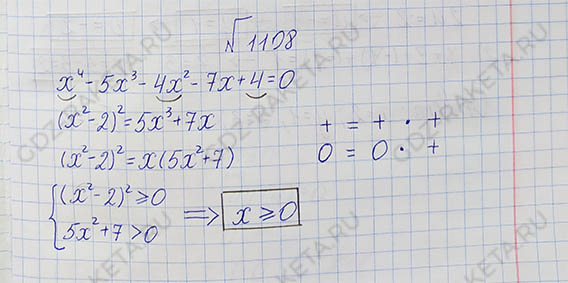 √1108
x⁴ - 5x³ - 4x² - 7x + 4 = 0
(x² - 2)² = 5x³ + 7x
+ = + · +
(x² - 2)² = x(5x² + 7)
0 = 0 · +
{(x² - 2)² ≥ 0
5x² + 7 > 0
⟹ x ≥ 0
GDZ-RAKETA.RU